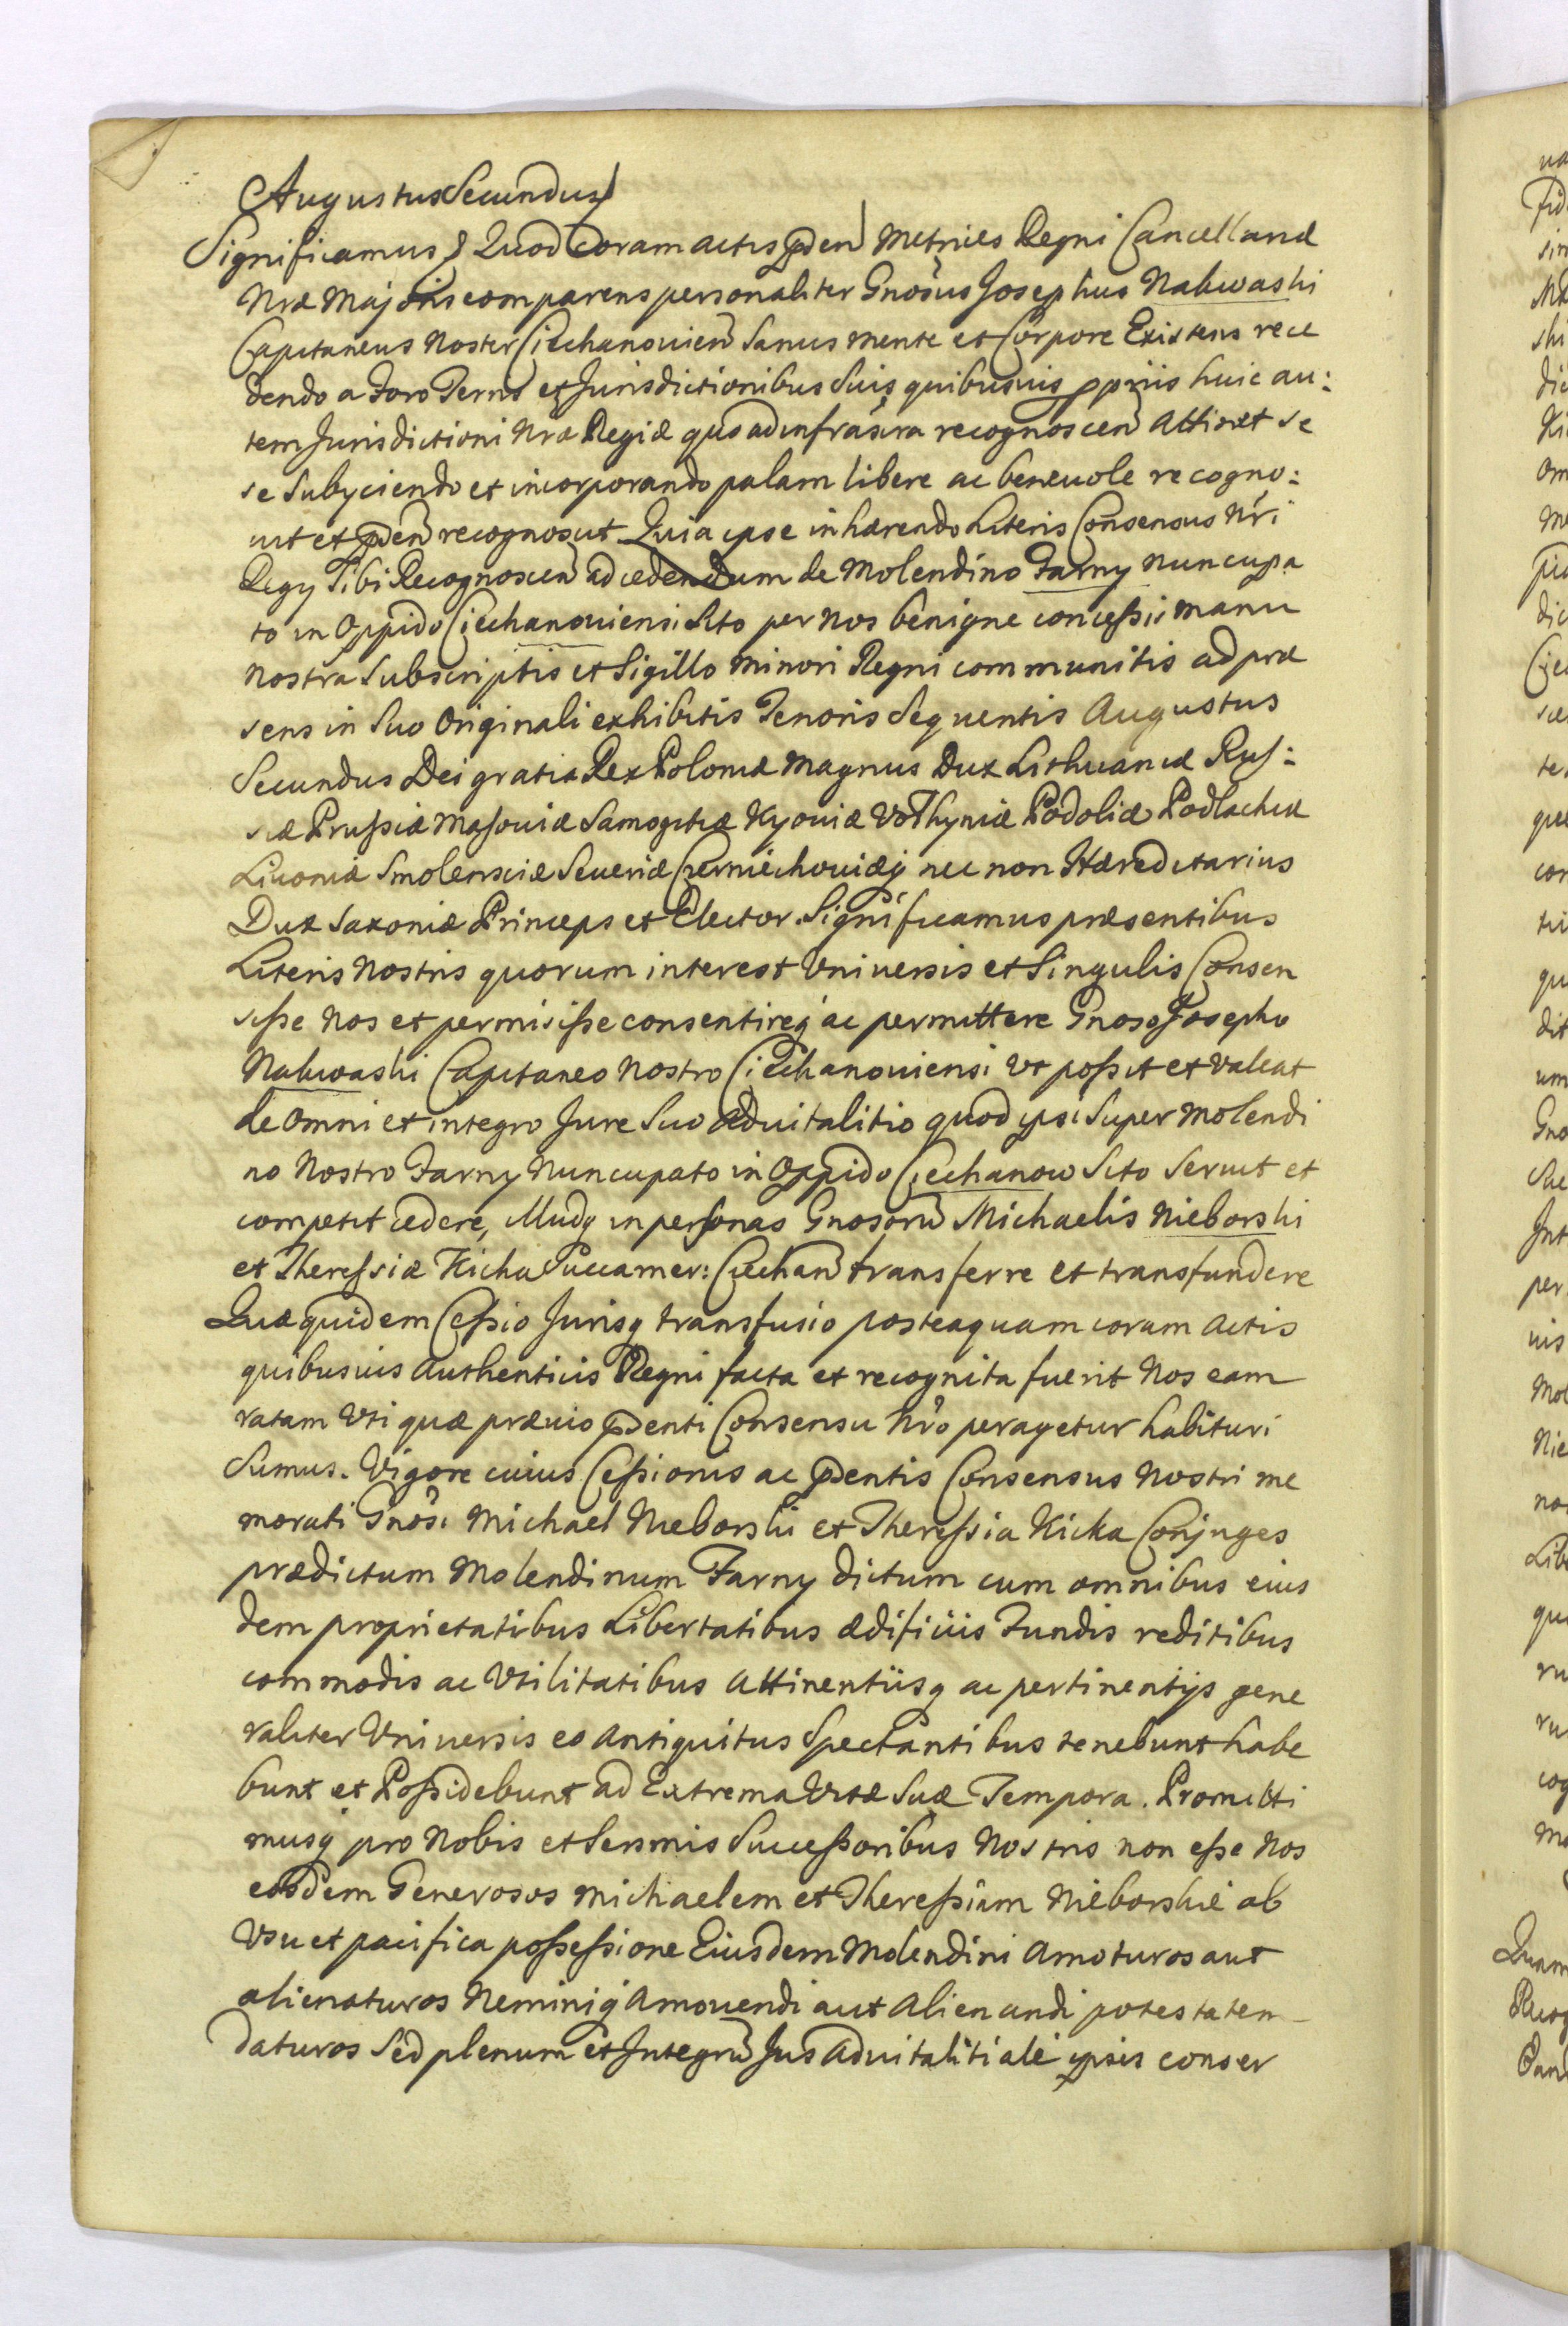 Augustus Secundus
Significamus Quod Coram actis pñden Metrices Regni Cancellariæ
Nræ Majoris comparens personaliter Gnosus Josephus Nakwaski
Capitaneus Noster Ciechanovien Sanus mente et Corpore Existens rece
dendo a Foro Terris et Jurisdictionibus Suis quibusvis ppriis huic au:
tem Jurisdictioni Nræ Regiæ quo ad infrascra recognoscen attinet se
se Subyciendo et incorporando palam libere ac benevole recogno:
uit et pñden recognoscit. Quia ipse inhærendo Literis Consensus Nri
Regy Sibi Recognoscen ad cedendum de Molendino Farny nuncupa
to in Oppido Ciechanoviensi Sito per Nos benigne concessi manu
Nostra Subscriptis et Sigillo Minori Regni communitis ad præ
sens in Suo Originali exhibitis Tenoris Sequentis Augustus
Secundus Dei gratia Rex Poloniæ Magnus Dux Lithuaniæ Rus:
siæ Prussiæ Masoviæ Samogitiæ Kyoviæ Volhyniæ Podoliæ Podlachiæ
Livoniæ Smolensciæ Severiæ Czerniechoviæq nec non Hæreditarius
Dux Saxoniæ Princeps et Elector. Significamus præsentibus
Literis Nostris quorum interest Universis et Singulis Consen
sisse Nos et permisisse consentireq ac permittere Gnoso Josepho
Nakwaski Capitaneo Nostro Ciechanoviensi Vt possit et valeat
de Omni et integro Jure Suo Advitalitio quod ipsi Super Molendi
no Nostro Farny Nuncupato in Oppido Ciechanow Sito Servit et
competit cedere, illudq in personas Gnosorũ Michaelis Nieborski
et Theressiæ Kicka Succamer: Ciechan transferre et transfundere
Quæ quidem Cessio Jurisq transfusio posteaquam coram Actis
quibusuis Authenticis Regni facta et recognita fuerit Nos eam
ratam Vti quæ prævio pñdenti Consensu Nro peragetur habituri
Sumus. Vigore cuius Cessionis ac pñdentis Consensus Nostri me
morati Gnosi Michael Nieborski et Theressia Kicka Conjuges
prædictum Molendinum Farny dictum cum omnibus eius
dem proprietatibus Libertatibus ædificiis Fundis reditibus
commodis ac Vtilitatibus Attinentiisq ac pertinentijs gene
raliter Vniversis eo Antiquitus Spectantibus tenebunt habe
bunt et Possidebunt ad Extrema Vitæ Suæ Tempora. Promitti
musq pro Nobis et Sersmis Successoribus Nostris non esse Nos
eosdem Generosos Michaelem et Theressiam Nieborskie ab
Vsu et pacifica possessione Eiusdem Molendini Amoturos aut
alienaturos Neminiq Amovendi aut Alienandi potestatem
daturos Sed plenum et Integrũ Jus Advitalitiale ipsis conser